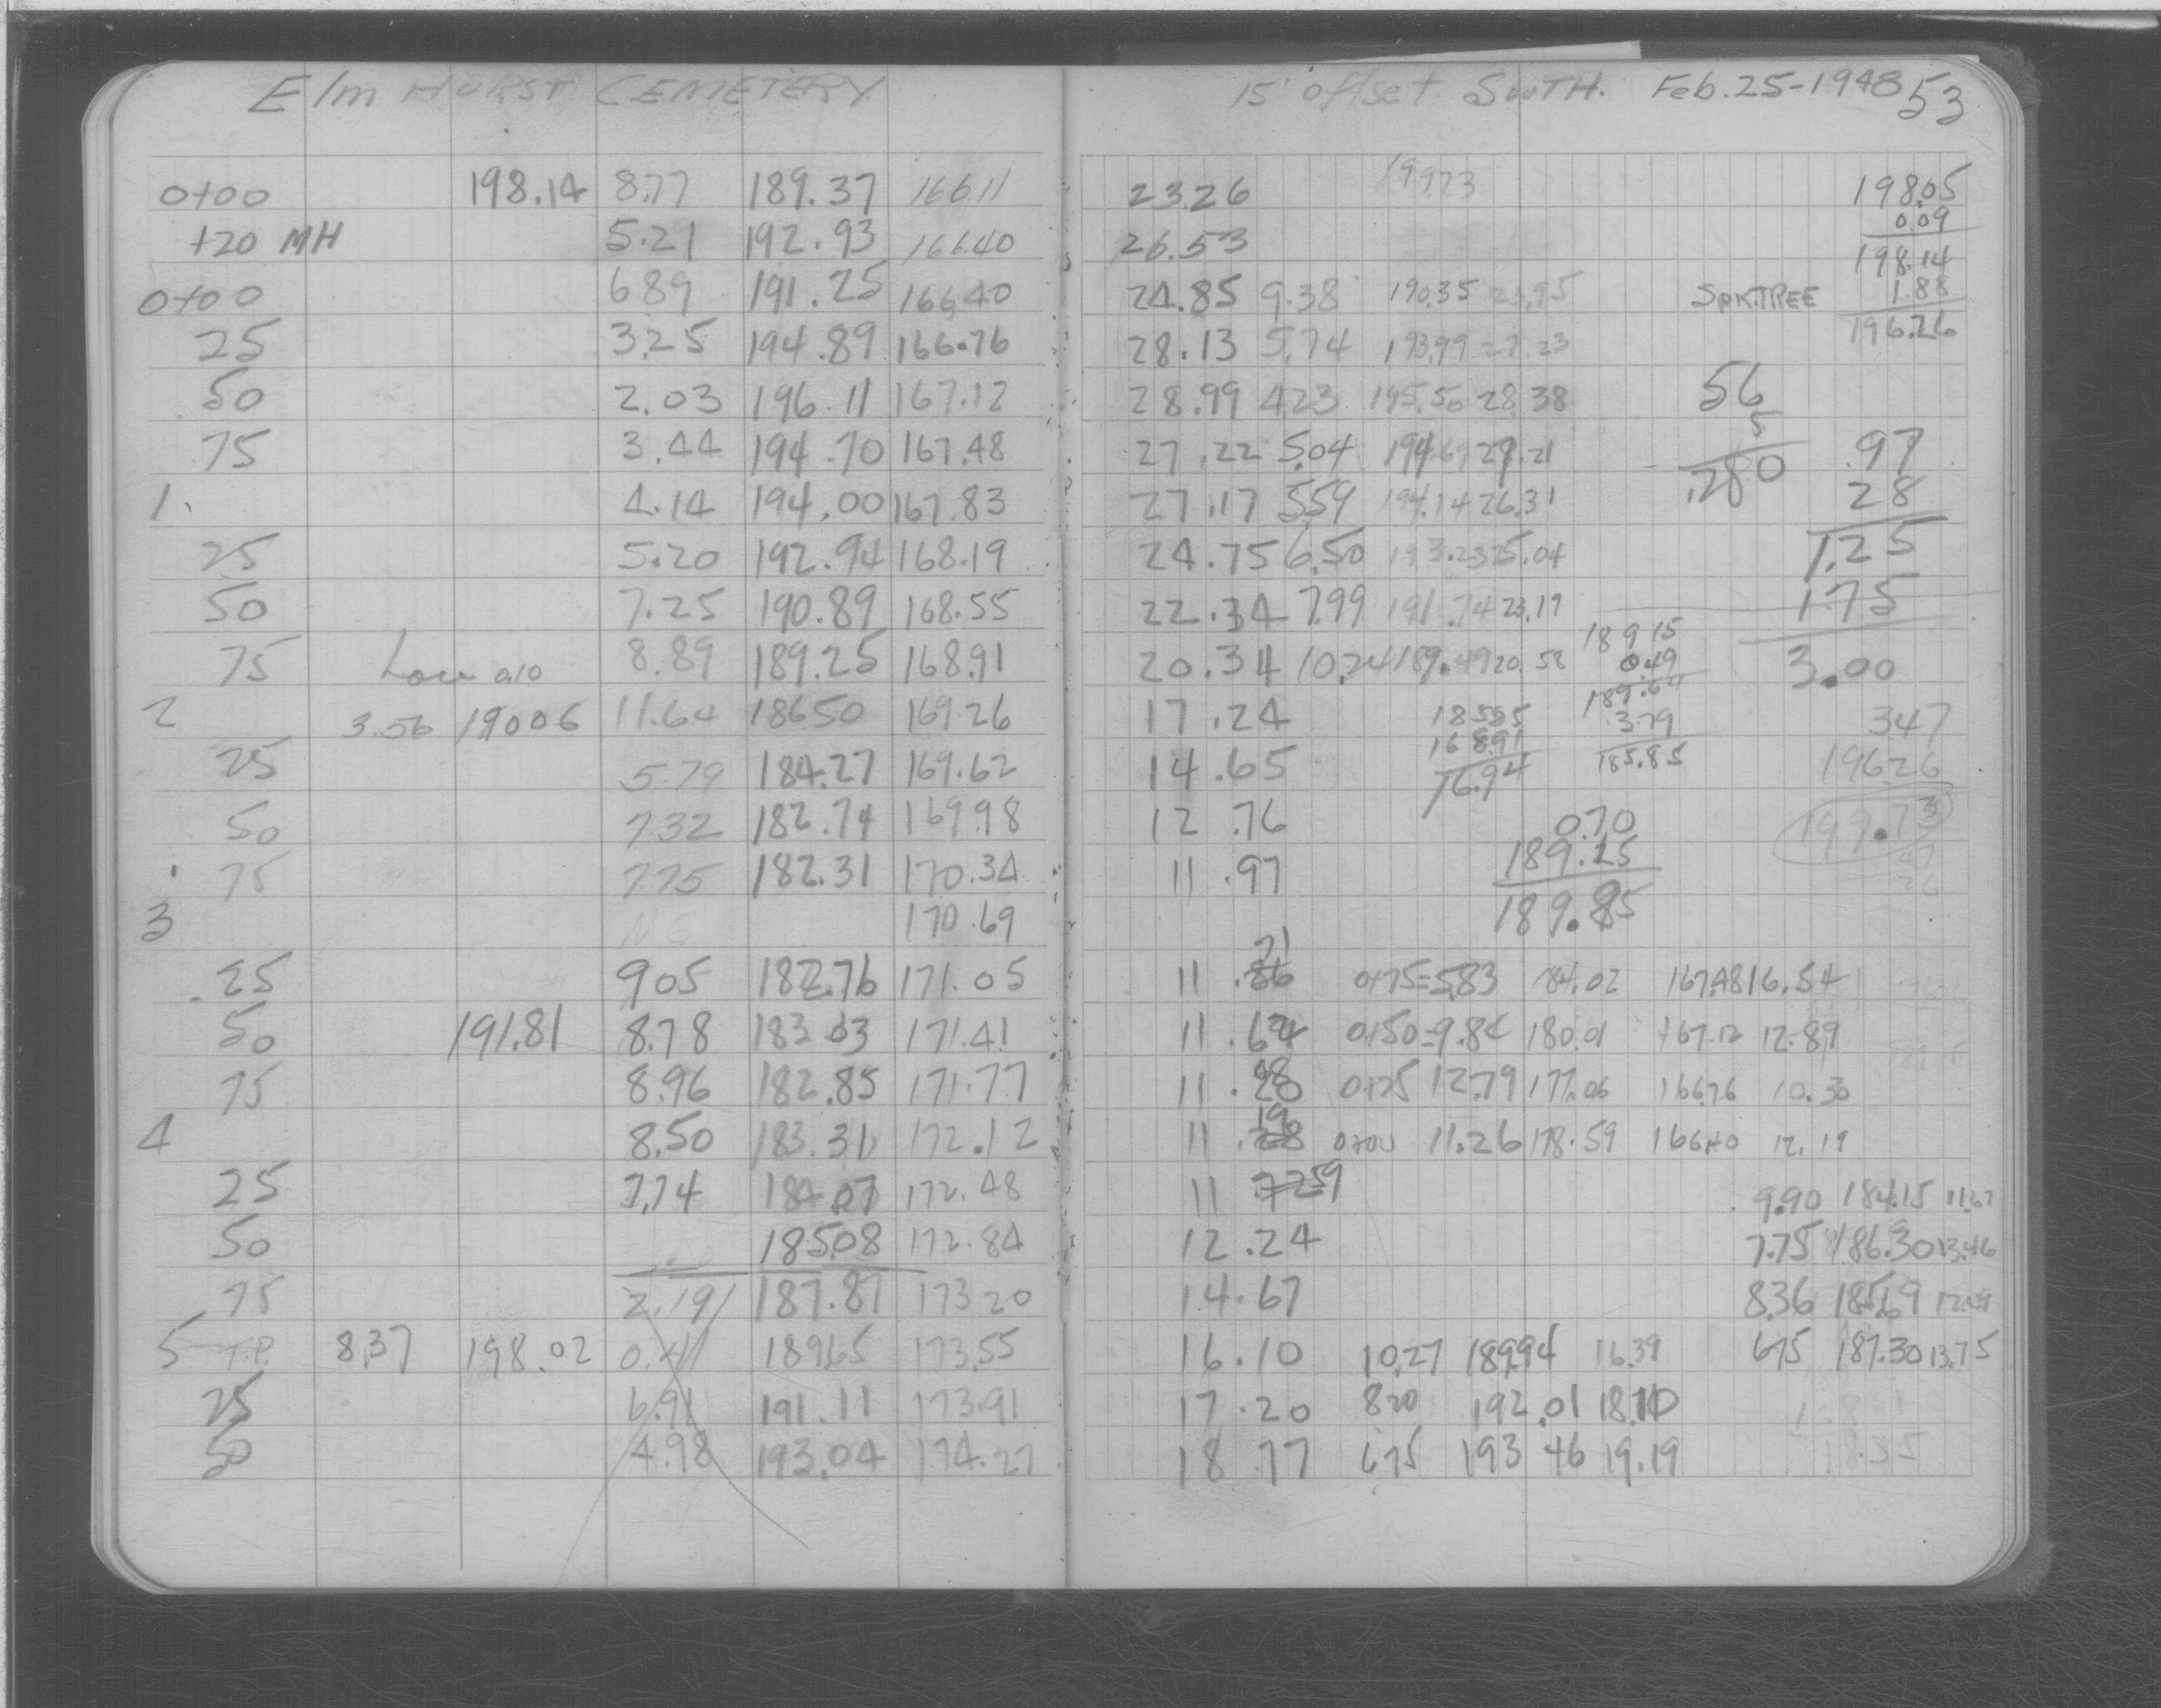 Elm HURST CEMETERY
0+00 198.14 8.77 189.37 166.11
+20 MH 5.21 192.93 166.40
0+00 6.89 191.25 166.40
25 3.25 194.89 166.76
50 2.03 196.11 167.12
75 3.44 194.70 167.48
1. 4.14 194.00 167.83
25 5.20 192.94 168.19
50 7.25 190.89 168.55
75 Low 0.10 8.89 189.25 168.91
2 3.56 190.06 11.64 186.50 169.26
25 5.79 184.27 169.62
50 7.32 182.74 169.98
75 7.75 182.31 170.34
3 170.69
25 9.05 182.76 171.05
50 191.81 8.78 183.03 171.41
75 8.96 182.85 171.77
4 8.50 183.31 172.12
25 7.74 184.07 172.48
50 185.08 172.84
75 2.19 187.87 173.20
5 T.P. 8.37 198.02 0.41 189.65 173.55
25 6.91 191.11 173.91
50 4.98 193.04 174.27
15' offset SOUTH. Feb. 25-1948 53
23.26 199.73 198.05
26.53 0.09
198.14
24.85 9.38 190.35 23.95 SPK.TREE 1.88
28.13 5.74 193.99 27.23 196.26
28.99 4.23 195.50 28.38 56
5
27.22 5.04 194.69 27.21 .280 .97
27.17 5.59 194.14 26.31 28
24.75 6.50 193.23 25.04 1.25
22.34 7.99 191.74 23.19 1.75
20.34 10.24 189.49 20.58 189.15 3.00
0.49
189.64
17.24 185.85 3.79 3.47
14.65 168.91 185.85 196.26
16.94
12.76 0.70 199.73
11.97 189.15
189.85
21
11.86 0+75=5.83 184.02 167.48 16.54
11.62 0+50=9.84 180.01 167.12 12.89
08
11.20 0+25 12.79 177.06 166.76 10.30
19
11.28 0+00 11.26 178.59 166.40 12.19
11 59 9.90 184.15 11.67
12.24 7.75 186.30 13.46
14.67 8.36 185.69 12.49
16.10 10.27 189.94 16.39 6.75 187.30 13.75
17.20 8.20 192.01 18.10
18.77 6.75 193.46 19.19